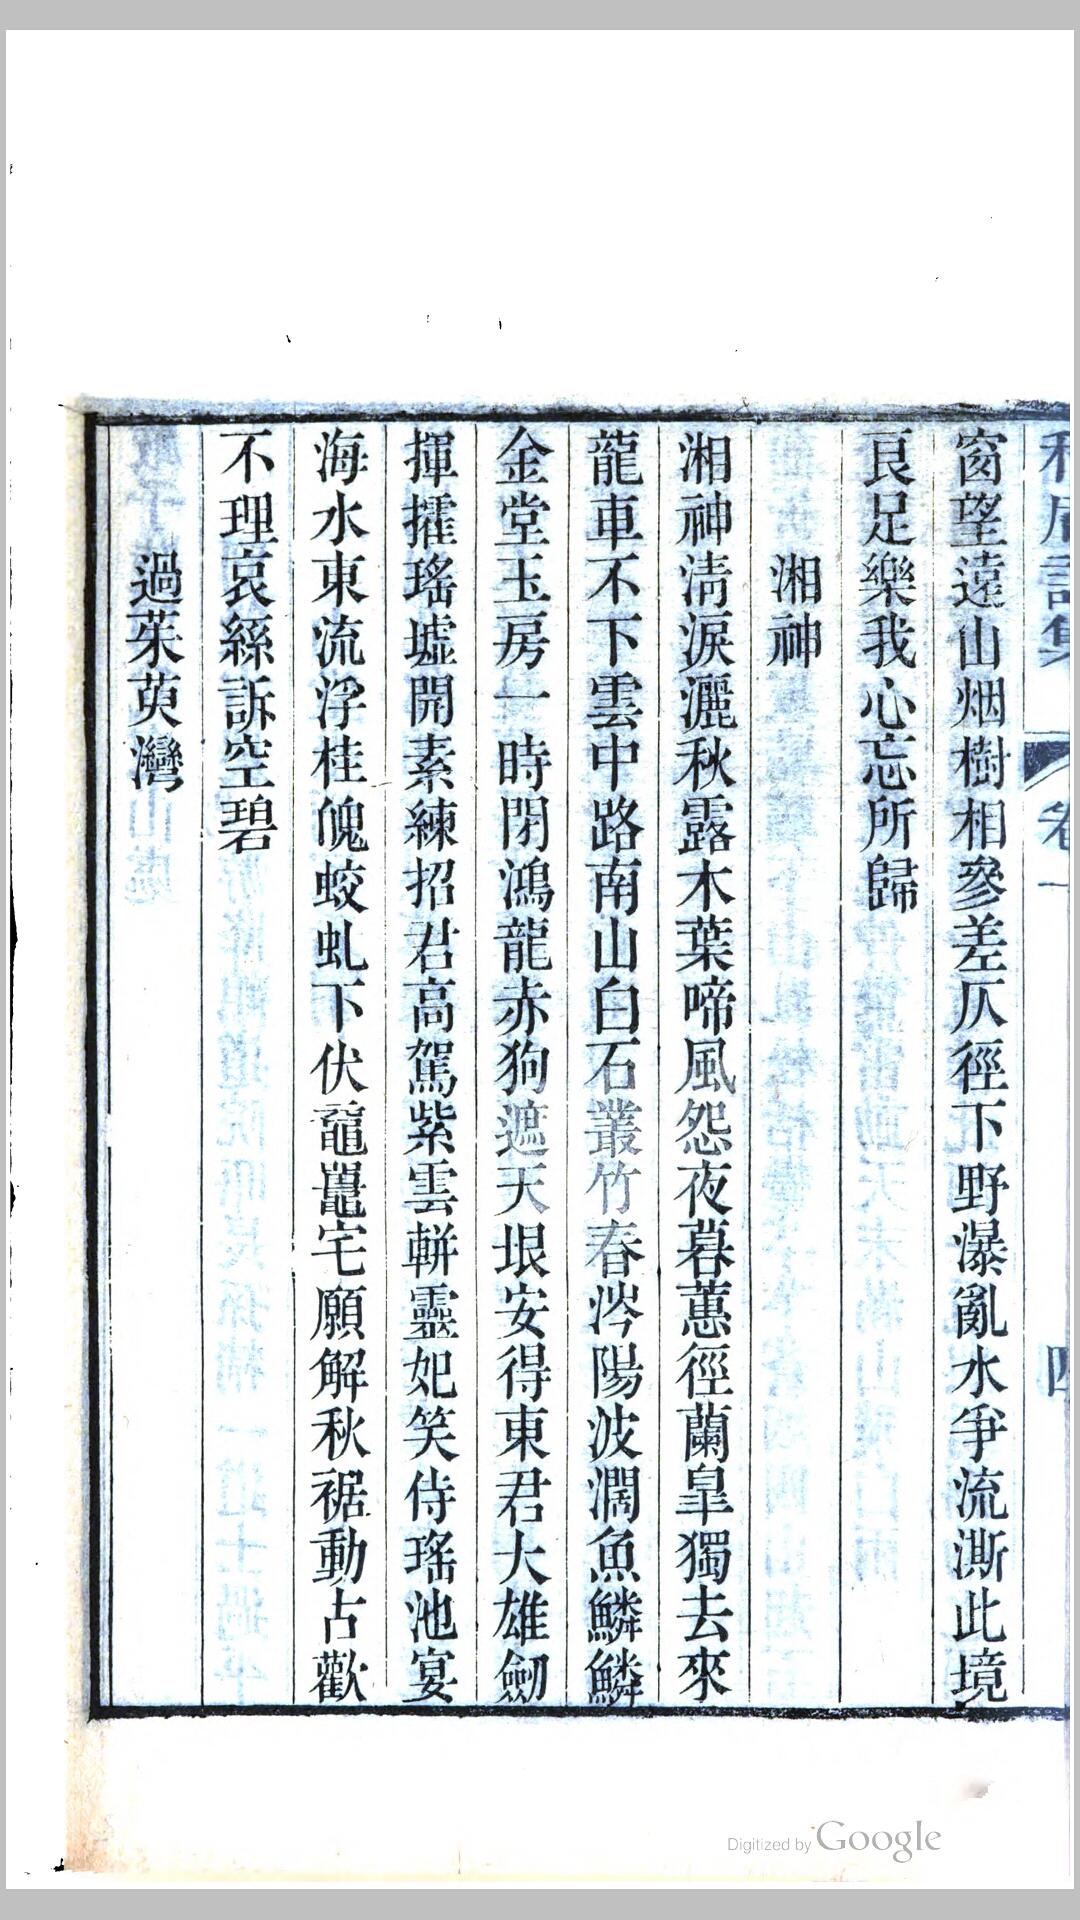 卷一
四
窗望遠山烟樹相參差仄徑下野瀑亂水爭流澌此境
良足樂我心忘所歸
湘神
湘神淸淚灑秋露木葉啼風怨夜暮蕙徑蘭皐獨去來
龍車不下雲中路南山白石叢竹春涔陽波濶魚鱗鱗
金堂玉房一時閉鴻龍赤狗遮天垠安得東君大雄劒
揮擢瑤墟開素練招君高駕紫雲輧靈妃笑侍瑤池宴
海水東流浮桂魄蛟虬下伏黿鼉宅願解秋裾動占歡
不理哀絲訴空碧
過茱萸灣
Digitized by Google